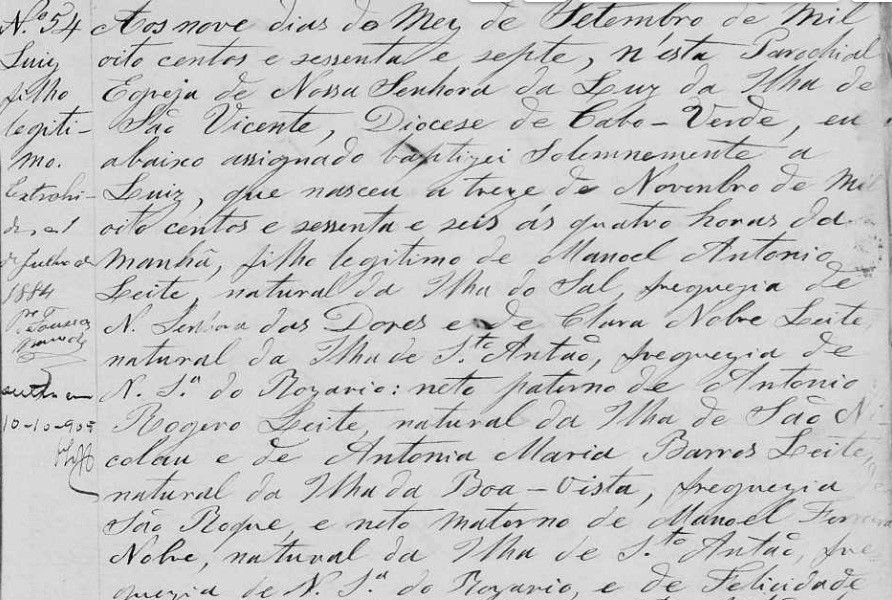 N.º 54
Luiz
filho
legiti-
mo.
Extrahi-
de Julho de
1884
10-10-905
Aos nove dias do Mez de Setembro de Mil
oito centos e sessenta e septe, n'esta Parochial
Egreja de Nossa Senhora da Luz da Ilha de
São Vicente, Diocese de Cabo-Verde, eu
abaixo assignado baptizei solemnemente a
Luiz, que nasceu a treze de Novembro de Mil
oito centos e sessenta e seis ás quatro horas da
manhã, filho legitimo de Manoel Antonio
Leite, natural da Ilha do Sal, freguezia de
N. Senhora das Dores e de Clara Nobre Leite
natural da Ilha de S.to Antão, freguezia de
N. S.a do Rozario: neto paterno de Antonio
Rogero Leite, natural da Ilha de São Ni-
colau e de Antonia Maria Barros Leite,
natural da Ilha da Boa-Vista, freguezia
São Roque, e neto materno de Manoel
Nobre, natural da Ilha de S.to Antão, fre
guezia de N. S.a do Rozario, e de Felicidade